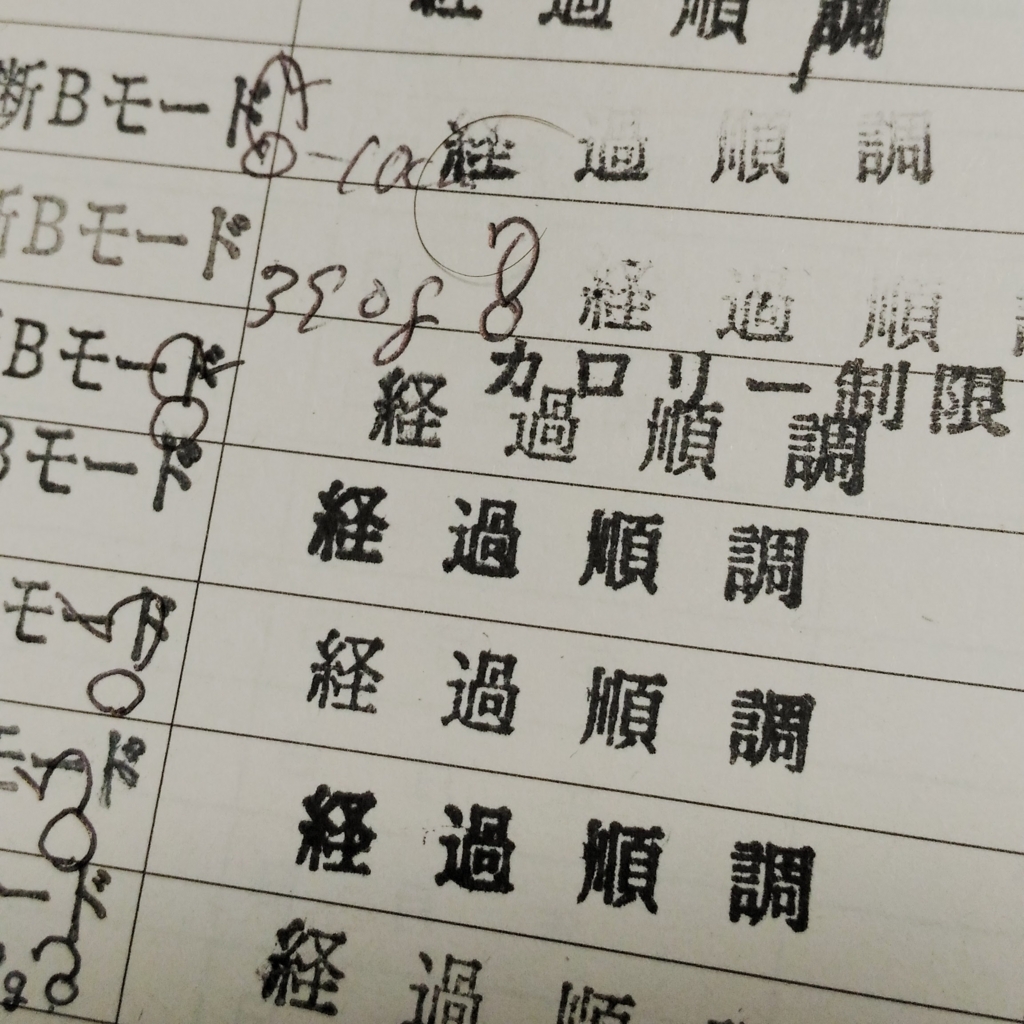 経過順調
断Bモード 経過順調
断Bモード 経過順
Bモード カロリー制限
経過順調
Bモード 経過順調
モード 経過順調
モード 経過順調
ード 経過順